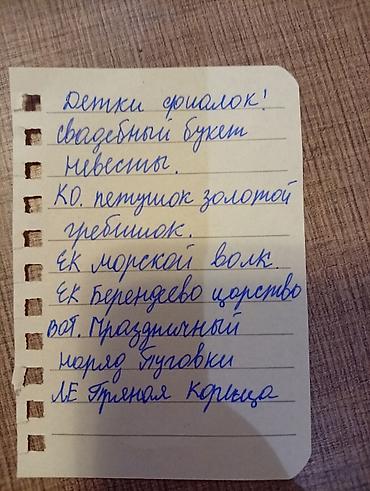 Детки фиалок!
свадебный букет
невесты.
КО. петушок золотой
гребешок.
ЕК морской волк.
ЕК Берендеево царство
ват. Праздничный
наряд Пуговки
ЛЕ Пряная Корица